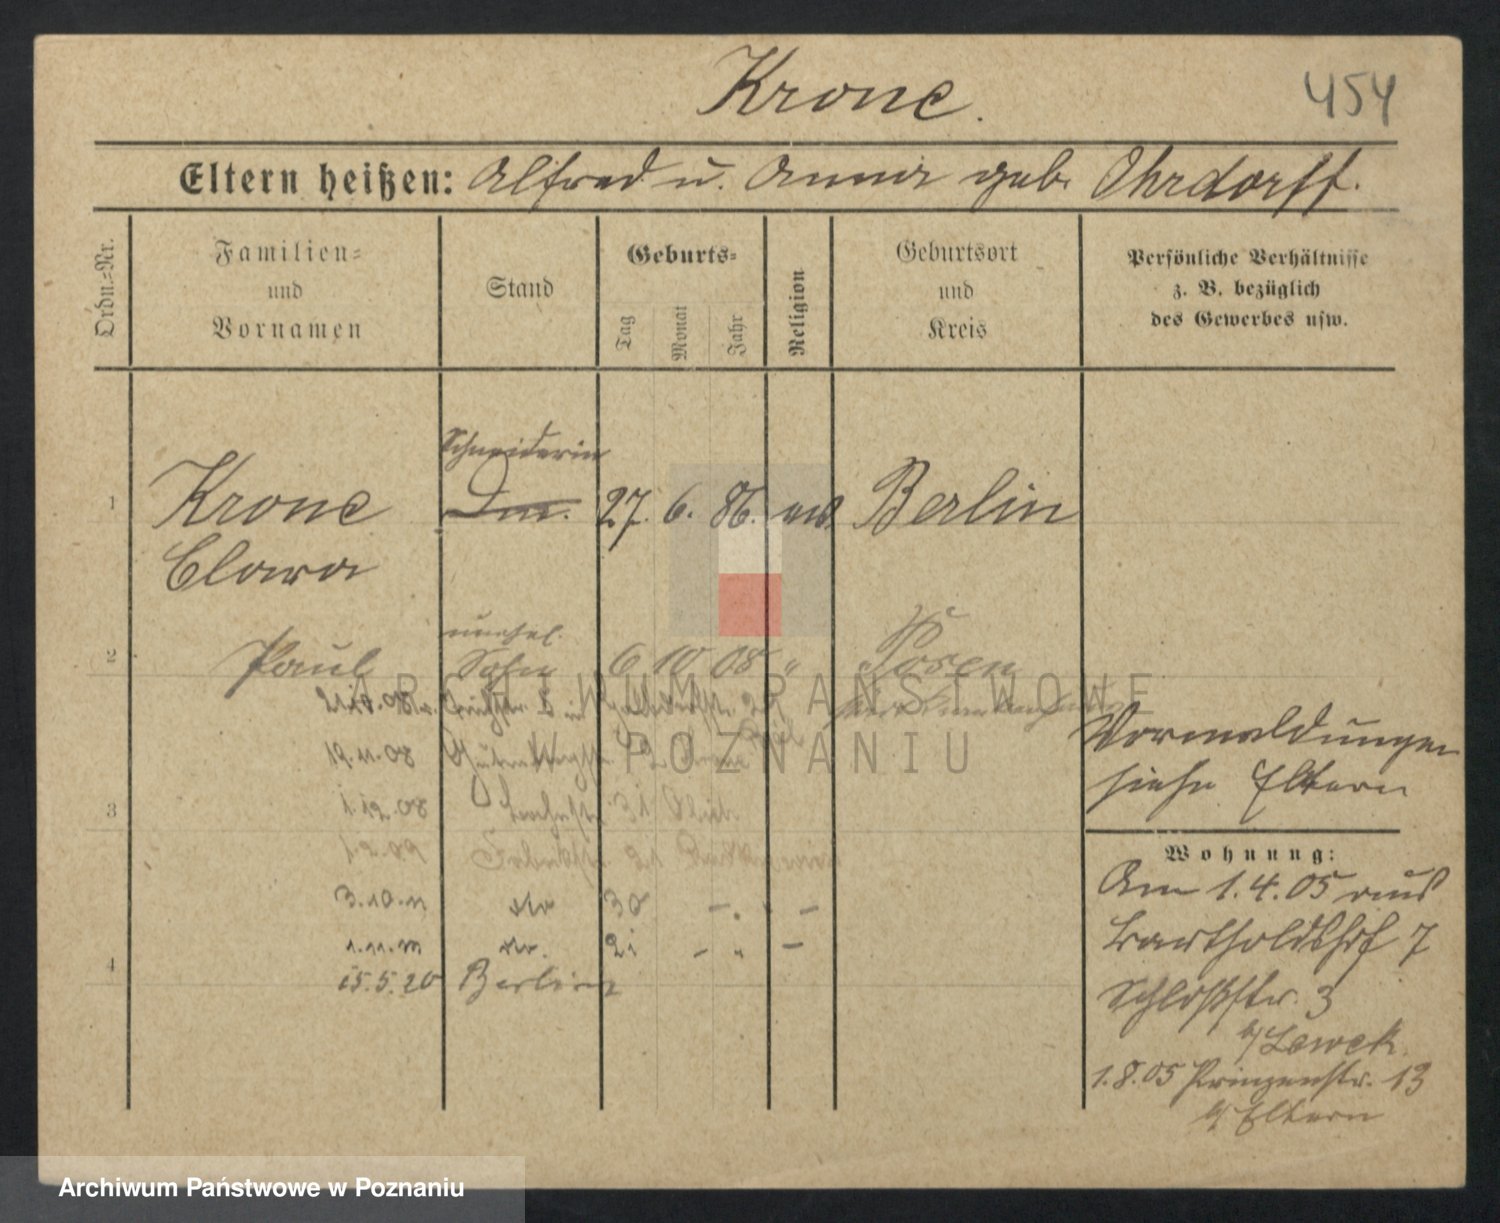 Krone.
454
Eltern heißen: Alfred u. Anna geb. Ohrdorff.
Ordn.-Nr.
Familien-
und
Vornamen
Stand
Geburts-
Tag
Monat
Jahr
Religion
Geburtsort
und
Kreis
Persönliche Verhältnisse
z. B. bezüglich
des Gewerbes usw.
Schneiderin
1 Krone 27. 6. 86. Berlin
Clara
unehel.
2 Paul Sohn 6 10 08 " Posen
19.11.08
3 1.12.08 31
1.2.09 21
3.10.11 dto 30 - " -
dto. 21 - " -
4 15.5.20 Berlin
Vormeldungen
siehe Eltern
Wohnung:
Am 1.4.05 aus
Bartholdshof 7
Schloßstr. 3
b/ Lewek.
1.8.05 Prinzenstr. 13
b/ Eltern
ARCHIWUM PAŃSTWOWE
W POZNANIU
Archiwum Państwowe w Poznaniu